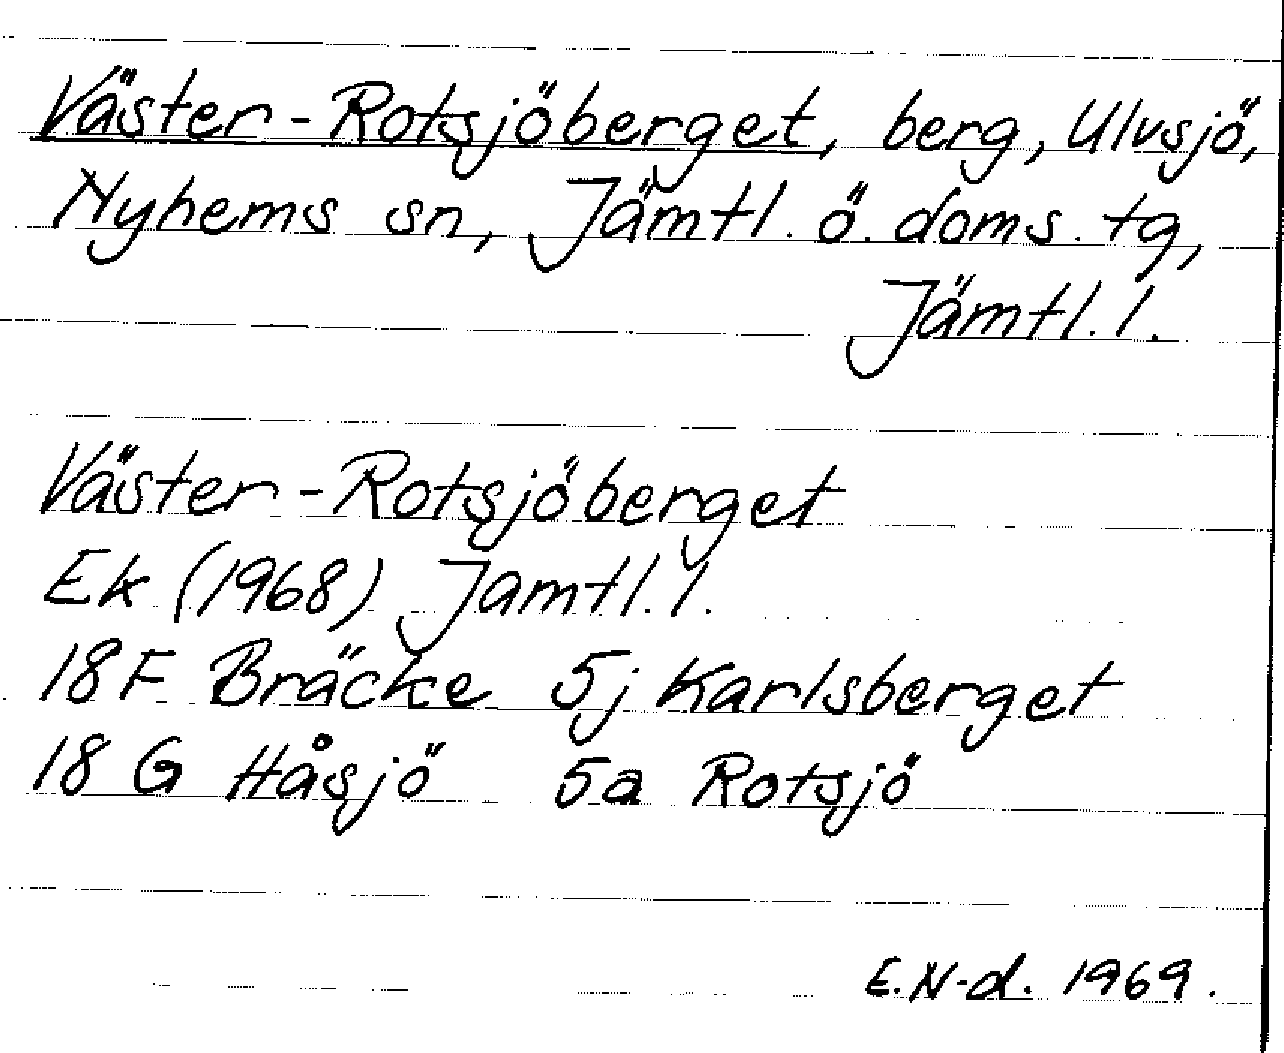 Väster-Rotsjöberget, berg, Ulvsjö,
Nyhems sn, Jämtl. ö. doms. tg,
Jämtl. l.
Väster-Rotsjöberget
Ek (1968) Jamtl. l.
18F Bräcke 5j Karlsberget
18 G Håsjö 5a Rotsjö
E.N-d. 1969.